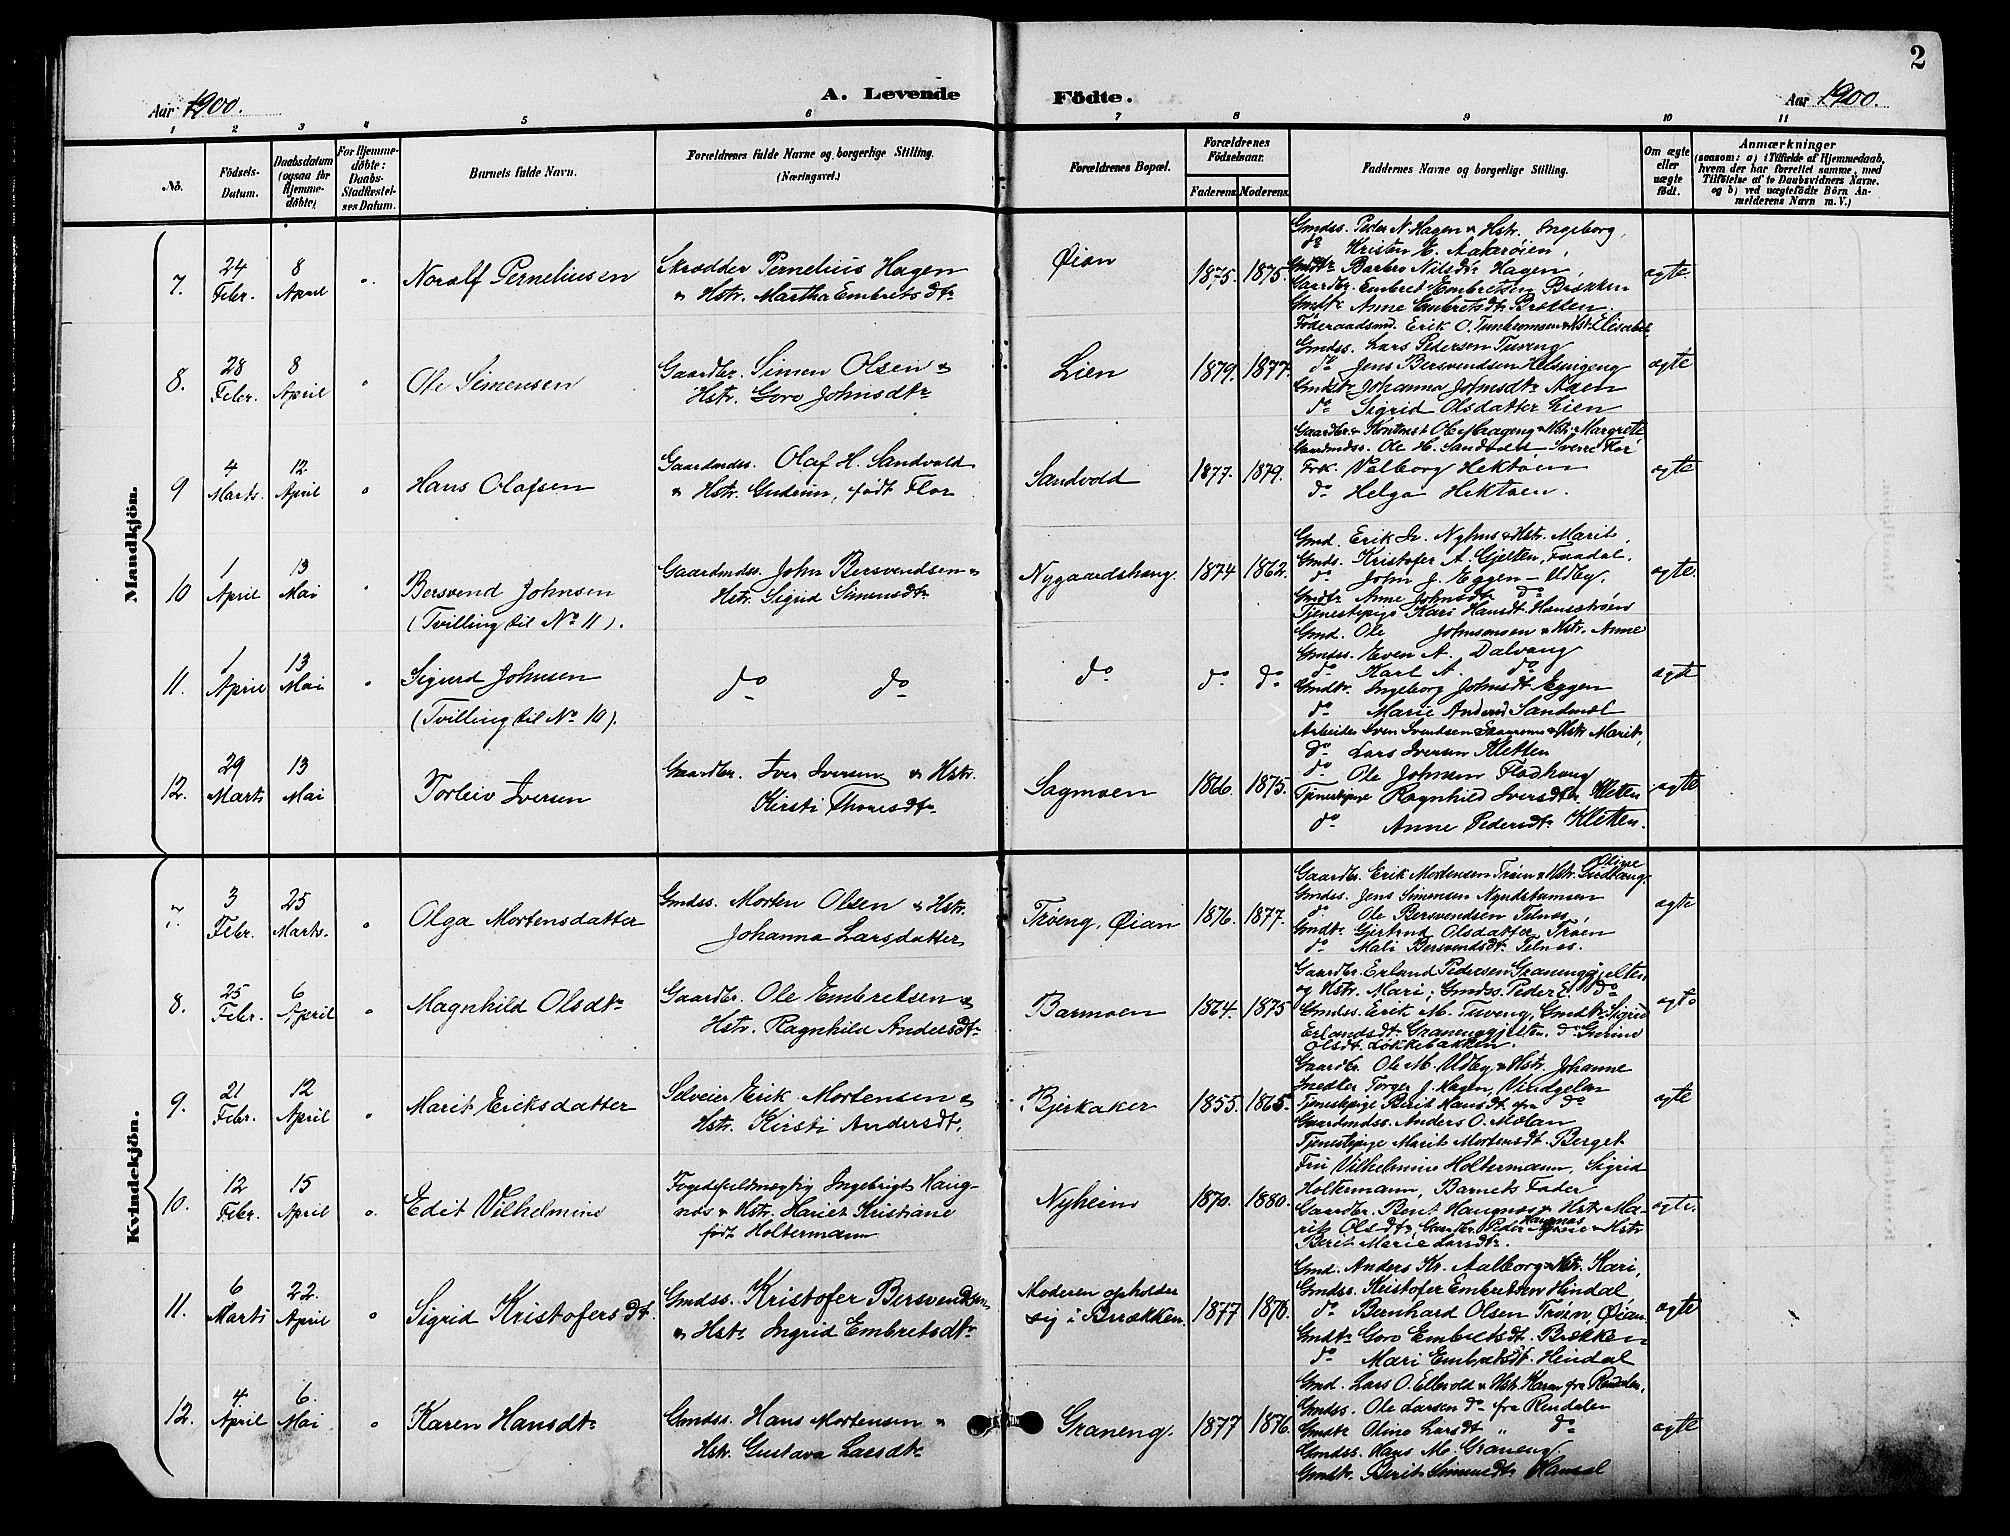 2
Aar 1900.
A. Levende
Födte.
Aar 1900.
1 2 3 4 5 6 7 8 9 10 11
No.
Födsels-
Datum.
Daabsdatum
(ogsaa for
Hjemme-
döbte)
For Hjemme-
döbte:
Daabs-
Stadfæstel-
ses Datum.
Barnets fulde Navn.
Forældrenes fulde Navne og borgerlige Stilling.
(Næringsvei.)
Forældrenes Bopæl.
Forældrenes
Födselsaar.
Faderens.
Moderens.
Faddernes Navne og borgerlige Stilling.
Om ægte
eller
uægte
födt.
Anmærkninger
(saasom: a) i Tilfælde af Hjemmedaab,
hvem der har forrettet samme, med
Tilföielse af to Daabsvidners Navne.
og b) ved uægtefödte Börn An-
melderens Navn m. V.)
Mandkjön.
7.
24
Febr.
8
April
Noralf Perneliussen
Skrædder Pernelius Hagen
& Hstr. Martha Embretsdtr
Øian
1875.
1875.
Gmdss. Peder N. Hagen & Hstr. Ingeborg,
do Kristen E. Aakerøien,
Gmdtr Barbro Nilsdtr Hagen,
Gaardbr. Embret Embretsen Brækken
Gmdtr Anne Embretsdtr Bratten
ægte.
8.
28
Febr.
8
April
Ole Simensen
Gaardbr. Simen Olsen &
Hstr. Goro Johnsdtr
Lien
1879.
1877.
Föderaadsmd. Erik O. & Hstr. Elisabet,
Gmdss. Lars Pedersen Tuveng
do Jens Bersvendsen Helsingeng
Gmdtr Johanna Johnsdtr Moen
do Sigrid Olsdatter Lien
ægte
9
4
Marts.
12
April
Hans Olafsen
Gaardmdss. Olaf H. Sandvold
& Hstr. Gudrun, født Flor
Sandvold
1877.
1879.
Gaardmdss. Ole H. Sandvold, Sverre Flor
Frk. Valborg Hektoen
do Helga Hektoen.
ægte
10
1
April
13
Mai
Bersvend Johnsen
(Tvilling til No 11).
Gaardmdss. John Bersvendsen &
Hstr. Sigrid Simensdtr
Nygaardshaug.
1874
1862.
Gmd. Erik Nyhus & Hstr. Marit,
Gmds. Kristofer A. Gjelten, Faadal.
do John J. Eggen – Udby.
Gmdtr Anne Johnsdtr do
Tjenestepige Kari Hansdt.
ægte.
11.
1
April
13
Mai
Sigurd Johnsen
(Tvilling til No 10).
do do
do
do
do
Gmd. Ole Johnsensen & Hstr. Anne
Gmdss. Even A. Dalvang
do Karl A. do
Gmdtr. Ingeborg Johnsdt. Eggen
do Marie Sandmæl
ægte
12.
29
Marts
13
Mai
Torleiv Iversen
Gaardbr. Iver Iversen & Hstr.
Kirsti Thoresdtr
Sagmoen
1866.
1875.
Arbeider Sven Svendsen & Hstr Marit,
do Lars Iversen Kletten
do Ole Johnsen Flodhaug
Tjenestepige Ragnhild Iversdtr Kletten
do Anne Pedersdtr Kletten.
ægte
Kvindekjön.
7.
3
Febr.
25
Marts.
Olga Mortensdatter
Gmdss. Morten Olsen & Hstr.
Johanna Larsdatter
Trøeng, Øian
1876.
1877.
Gaardbr. Erik Mortensen Trøen & Hstr. Oline
Gmdss. Jens Simensen
do Ole Bersvendsen Telnes,
Gmdtr. Gjertrud Olsdatter Trøen
do Mali Bersvendsdtr Telnes.
ægte
8.
25
Febr.
6
April
Magnhild Olsdtr
Gaardbr. Ole Embretsen &
Hstr. Ragnhild Andersdtr
Barmoen
1864.
1875
Gaardbr. Erland Pedersen Granenggjelten
og Hstr. Mari, Gmdss. Peder E. do
Gmdss. Erik M. Tuveng, Gmdtr Sigrid
Erlandsdtr Granenggjelten. do Gurine
Olsdt. Løkkebakken.
ægte
9.
21
Febr.
12
April
Marit Eriksdatter
Selveier Erik Mortensen &
Hstr. Kirsti Andersdt.
Bjerkaker
1855.
1865.
Gaardbr. Ole M. Udby & Hstr. Johanne
Snedker Torger J. Hagen, Vindgelen
Tjenestepige Berit Hansdt. fra do
Gaardmdss. Anders O. Mælan
Tjenestepige Marit Mortensdt. Berget
ægte
10.
12
Febr.
15
April
Edit Vilhelmine
Fogedfuldmægtig Ingebrigt Haug-
næs & Hstr. Hariet Kristiane
født Holtermann
Nyheim
1870.
1880.
Fru Vilhelmine Holtermann, Sigrid
Holtermann, Barnets Fader
Gaardbr. Bent Haugnæs & Hstr. Ma-
rit Olsdtr, Gaardbr. Peder Haugnæs & Hstr
Berit Marie Larsdtr.
ægte.
11.
6
Marts
22.
April
Sigrid Kristofersdt.
Gmdss. Kristofer Bersvendsen
& Hstr Ingrid Embretsdtr
Moderen opholder
sig i Brækken.
1877
1876.
Gmd. Anders Kr. Aalborg & Hstr. Kari,
Gmdss. Kristofer Embretsen Hindal,
do Bernhard Olsen Trøen, Øian
Gmdtr Goro Embretsdt. Brækken
do Mari Embretsdt. Hindal
ægte
12.
4.
April
6.
Mai
Karen Hansdtr
Gmdss. Hans Mortensen &
Hstr. Gustava Larsdtr
Graneng.
1877
1876.
Gmd. Lars O. Ellevold & Hstr. Karen fra Rendalen,
Gmdss. Ole Larsen do fra Rendalen
Gmdtr Oline Larsdt " do
Gmdss. Hans M. Graneng.
Gmdtr. Berit Simensdtr
ægte